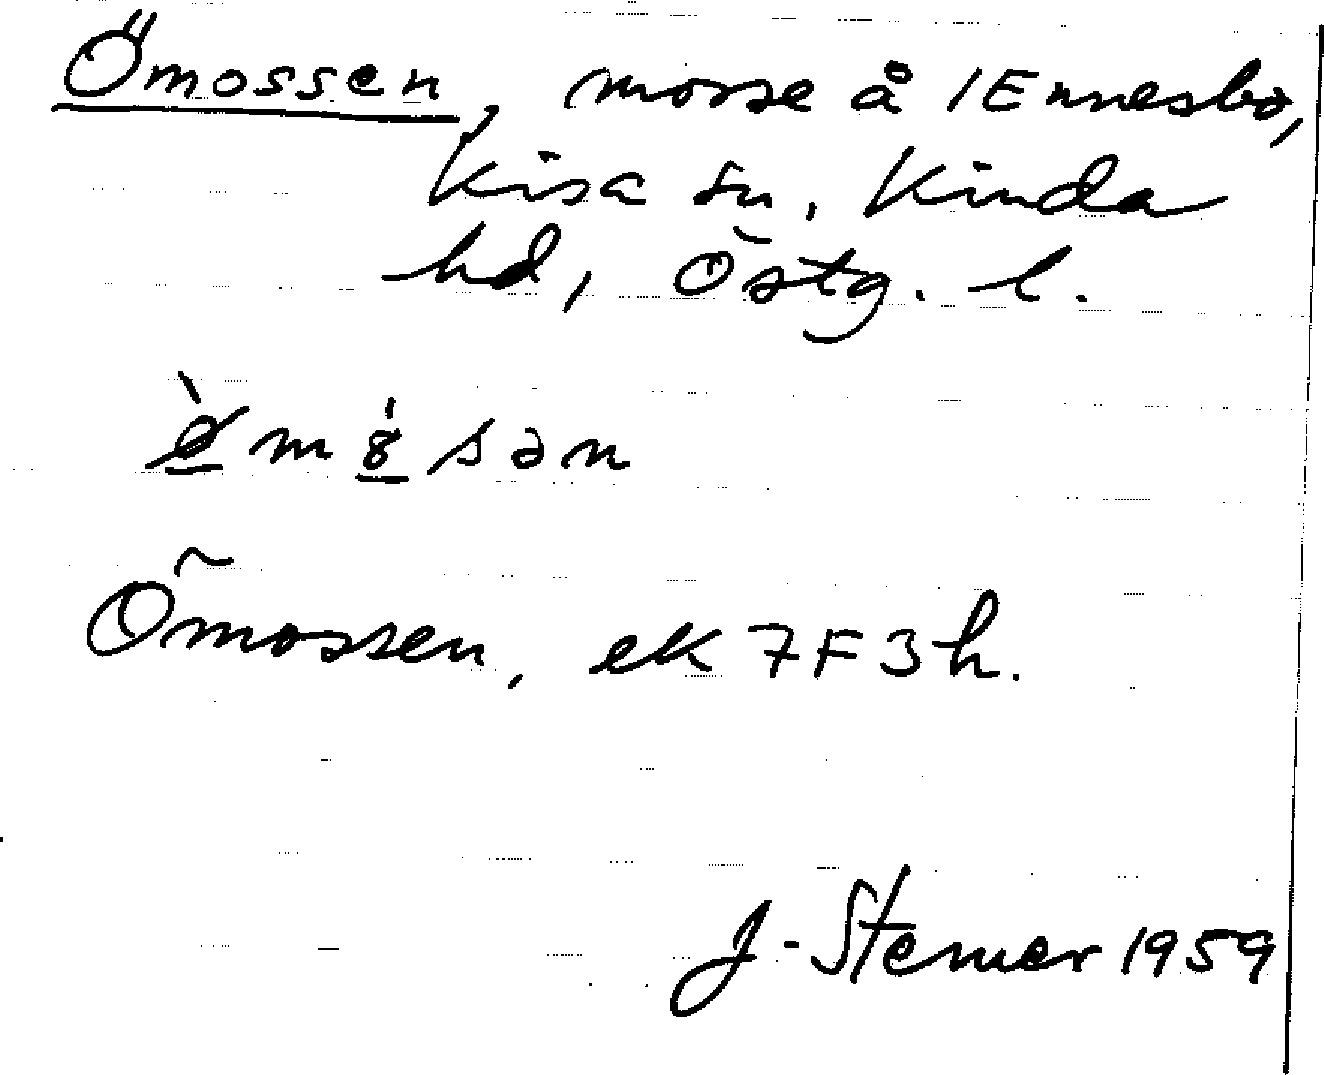 Ömossen, mosse å /Ennesbo,
Kisa sn, Kinda
hd, Östg. l.
Ömossen, ek 7F3h.
J. Sterner 1959